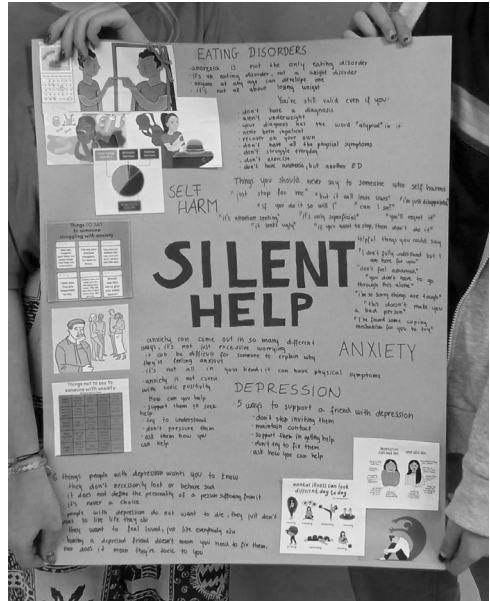 EATING DISORDERS
· anorexia is not the only eating disorder
· it's an eating disorder, not a weight disorder
· anyone at any age can develop one
· it's not all about losing weight
You're still valid even if you:
· don't have a diagnosis
· aren't underweight
· your diagnosis has the word "atypical" in it
· never been inpatient
· recover on your own
· don't have all the physical symptoms
· don't struggle everyday
· don't exercise
· don't have anorexia, but another ED
SELF
HARM
Things you should never say to someone who self harms
"just stop for me"
"but it will leave scars"
"I'm just disappointed"
"if you do it so will I"
"can I see?"
"it's attention seeking"
"it's only superficial"
"you'll regret it"
"it looks ugly"
"if you want to stop, then don't do it"
Helpful things you could say
"I don't fully understand but I
am here for you"
"don't feel ashamed"
"you don't have to go
through this alone"
"I'm so sorry things are tough"
"this doesn't make you
a bad person"
"I've found some coping
mechanism for you to try"
Things TO SAY
to someone
struggling with anxiety
SILENT
HELP
ANXIETY
anxiety can come out in so many different
ways, it's not just excessive worrying
it can be difficult for someone to explain why
they're feeling anxious
· it's not all in your head; it can have physical symptoms
· anxiety is not cured
with toxic positivity
How can you help
· support them to seek
help
· try to understand
· don't pressure them
· ask them how you
can help
Things not to say to
someone with anxiety
DEPRESSION
· 5 ways to support a friend with depression
· don't stop inviting them
· maintain contact
· support them in getting help
· don't try to fix them
· ask how you can help
6 things people with depression wants you to know
· they don't necessarily look or behave sad
· it does not define the personality of a person suffering from it
· it's never a choice
· people with depression do not want to die, they just don't
want to live life they do
· they want to feel loved, just like everybody else
· having a depressed friend doesn't mean you need to fix them,
nor does it mean they're toxic to you
mental illness can look
different day to day